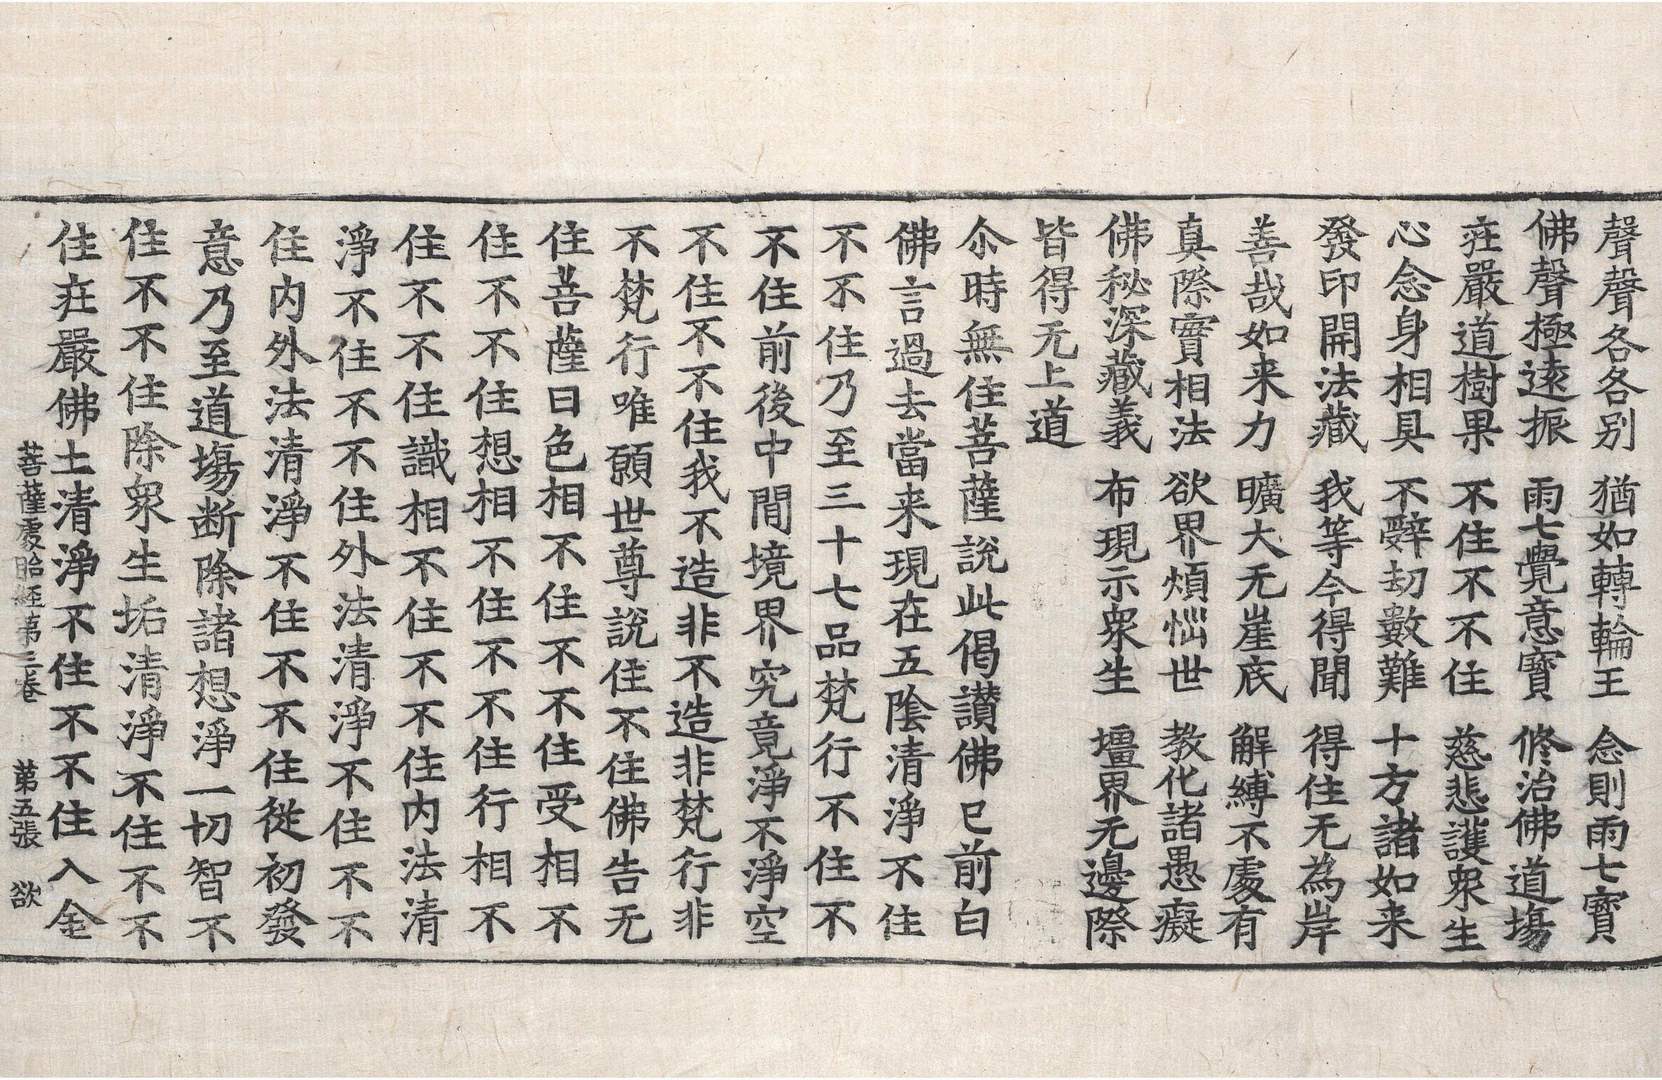 聲聲各各别　猶如轉輪王　念則雨七寶
佛聲極遠振　雨七覺意寶　修治佛道塲
莊嚴道樹果　不住不不住　慈悲護衆生
心念身相具　不辭劫數難　十方諸如来
發印開法藏　我等今得聞　得住无為岸
善哉如来力　曠大无崖底　解縛不處有
真際實相法　欲界煩惱世　教化諸愚癡
佛秘深藏義　布現示衆生　壃界无邊際
皆得无上道
尒時無住菩薩說此偈讃佛已前白
佛言過去當来現在五陰清淨不住
不不住乃至三十七品梵行不住不
不住前後中間境界究竟淨不淨空
不住不不住我不造非不造非梵行非
不梵行唯願世尊說住不住佛告无
住菩薩曰色相不住不不住受相不
住不不住想相不住不不住行相不
住不不住識相不住不不住内法清
淨不住不不住外法清淨不住不不
住内外法清淨不住不不住從初發
意乃至道塲断除諸想淨一切智不
住不不住除衆生垢清淨不住不不
住莊嚴佛土清淨不住不不住入金
菩薩處胎經第三卷　第五張　欲